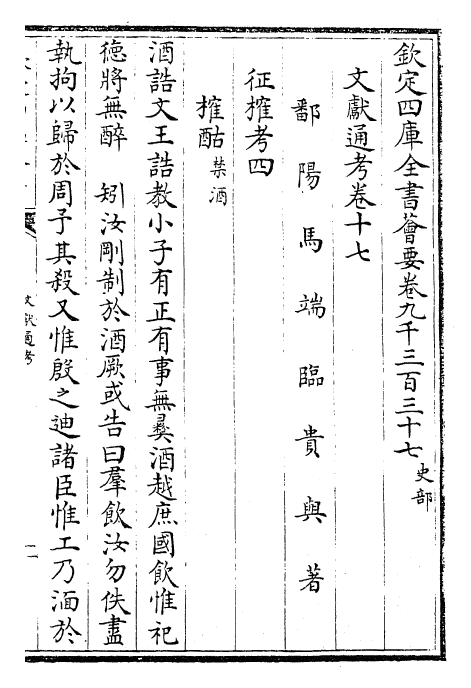 欽定四庫全書薈要卷九千三百三十七史部
文獻通考卷十七
鄱陽馬端臨貴與著
征榷考四
榷酤禁酒
酒誥文王誥教小子有正有事無彞酒越庶國飲惟祀
德將無醉　矧汝剛制於酒厥或告曰羣飲汝勿佚盡
執拘以歸於周予其殺又惟殷之迪諸臣惟工乃湎於
文獻通考
一